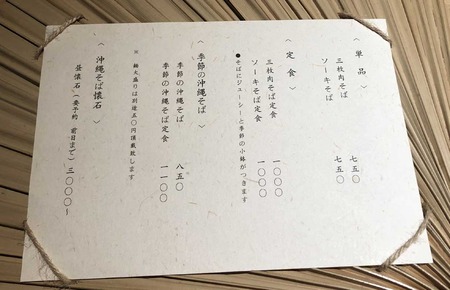 〈 単品 〉
三枚肉そば 七五〇
ソーキそば 七五〇
〈 定食 〉
三枚肉そば定食 一〇〇〇
ソーキそば定食 一〇〇〇
●そばにジューシーと季節の小鉢がつきます
〈 季節の沖縄そば 〉
季節の沖縄そば 八五〇
季節の沖縄そば定食 一一〇〇
※ 麺大盛りは別途五〇円頂戴致します
〈 沖縄そば懐石 〉
昼懐石(要予約 前日まで)三〇〇〇～